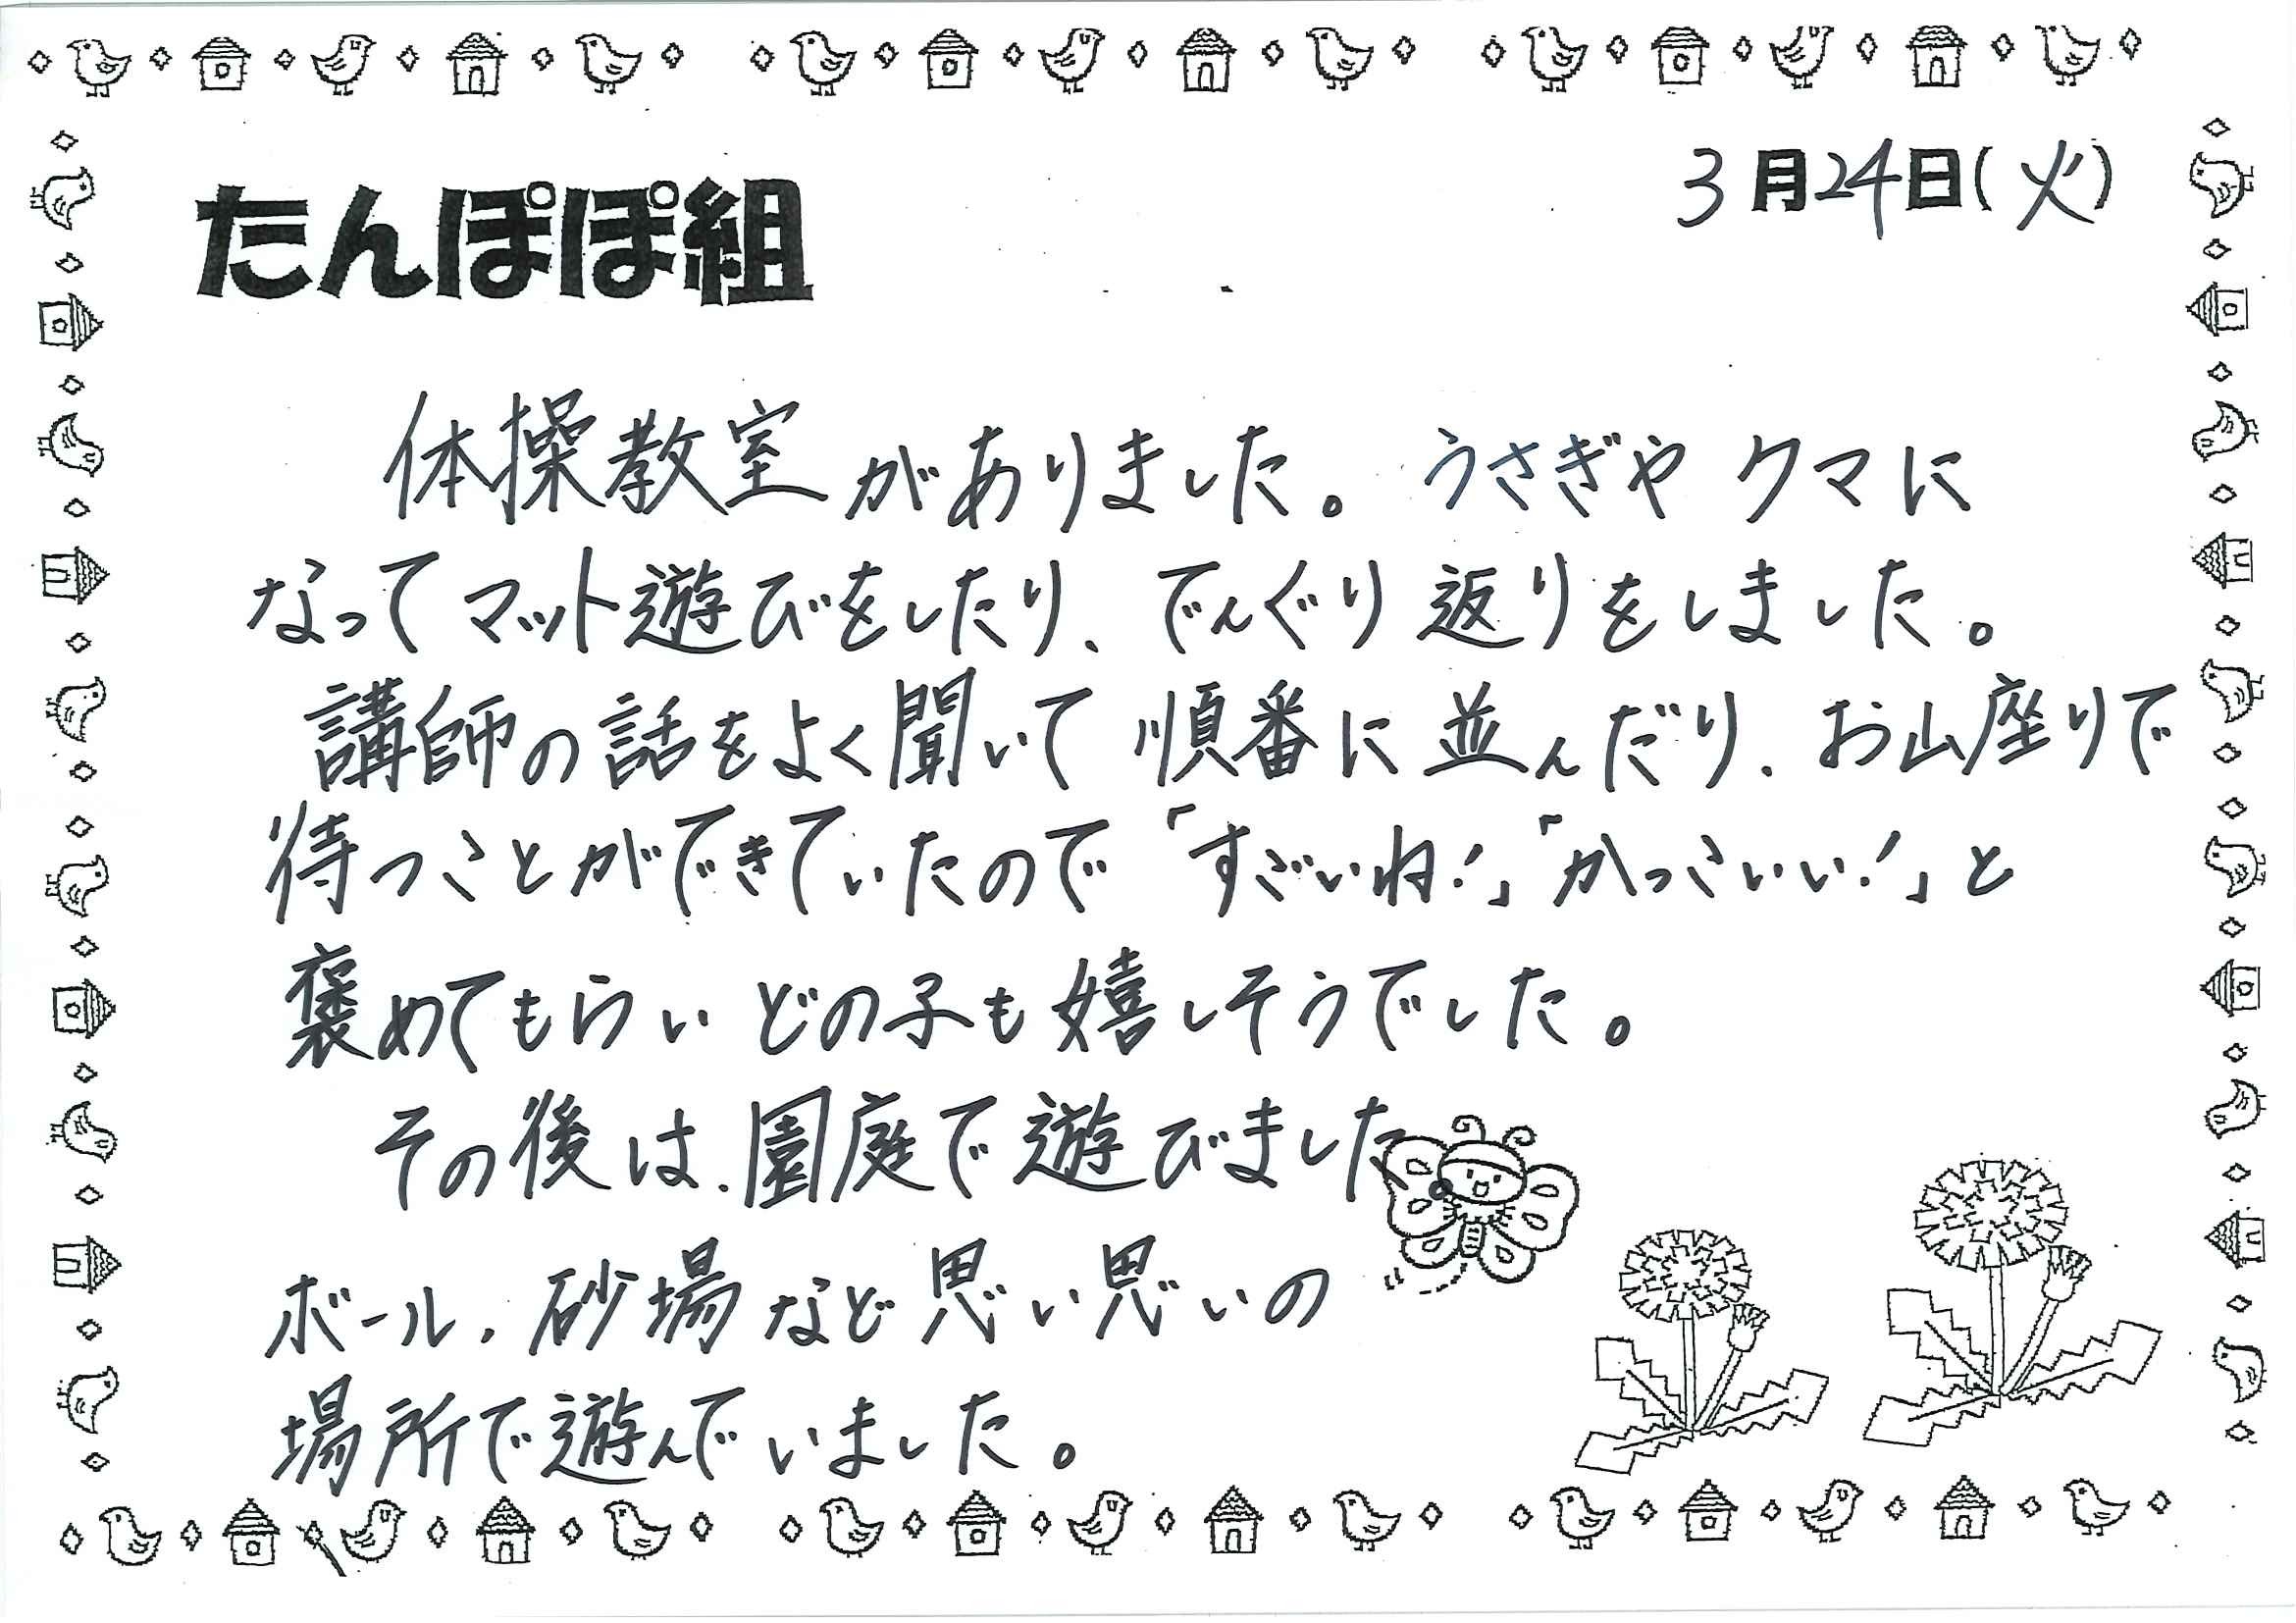 3月24日(火)
たんぽぽ組
体操教室がありました。うさぎやクマに
なってマット遊びをしたり、でんぐり返りをしました。
講師の話をよく聞いて順番に並んだり、お山座りで
待つことができていたので「すごいね!」「かっこいい!」と
褒めてもらいどの子も嬉しそうでした。
その後は、園庭で遊びました。
ボール、砂場など思い思いの
場所で遊んでいました。